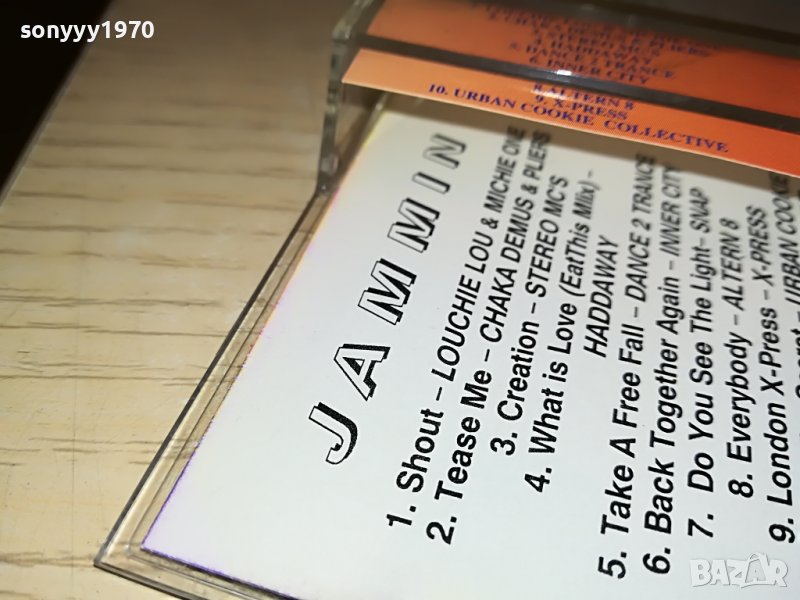 sonyyy1970
HADDAWAY
5. DANCE 2 TRANCE
6. INNER CITY
8. ALTERN 8
9. X-PRESS
10. URBAN COOKIE COLLECTIVE
JAMMIN
1. Shout - LOUCHIE LOU & MICHIE ONE
2. Tease Me - CHAKA DEMUS & PLIERS
3. Creation - STEREO MC'S
4. What is Love (EatThis MIix) -
HADDAWAY
5. Take A Free Fall - DANCE 2 TRANCE
6. Back Together Again - INNER CITY
7. Do You See The Light- SNAP
8. Everybody - ALTERN 8
9. London X-Press - X-PRESS
URBAN COOKIE
BAZAR